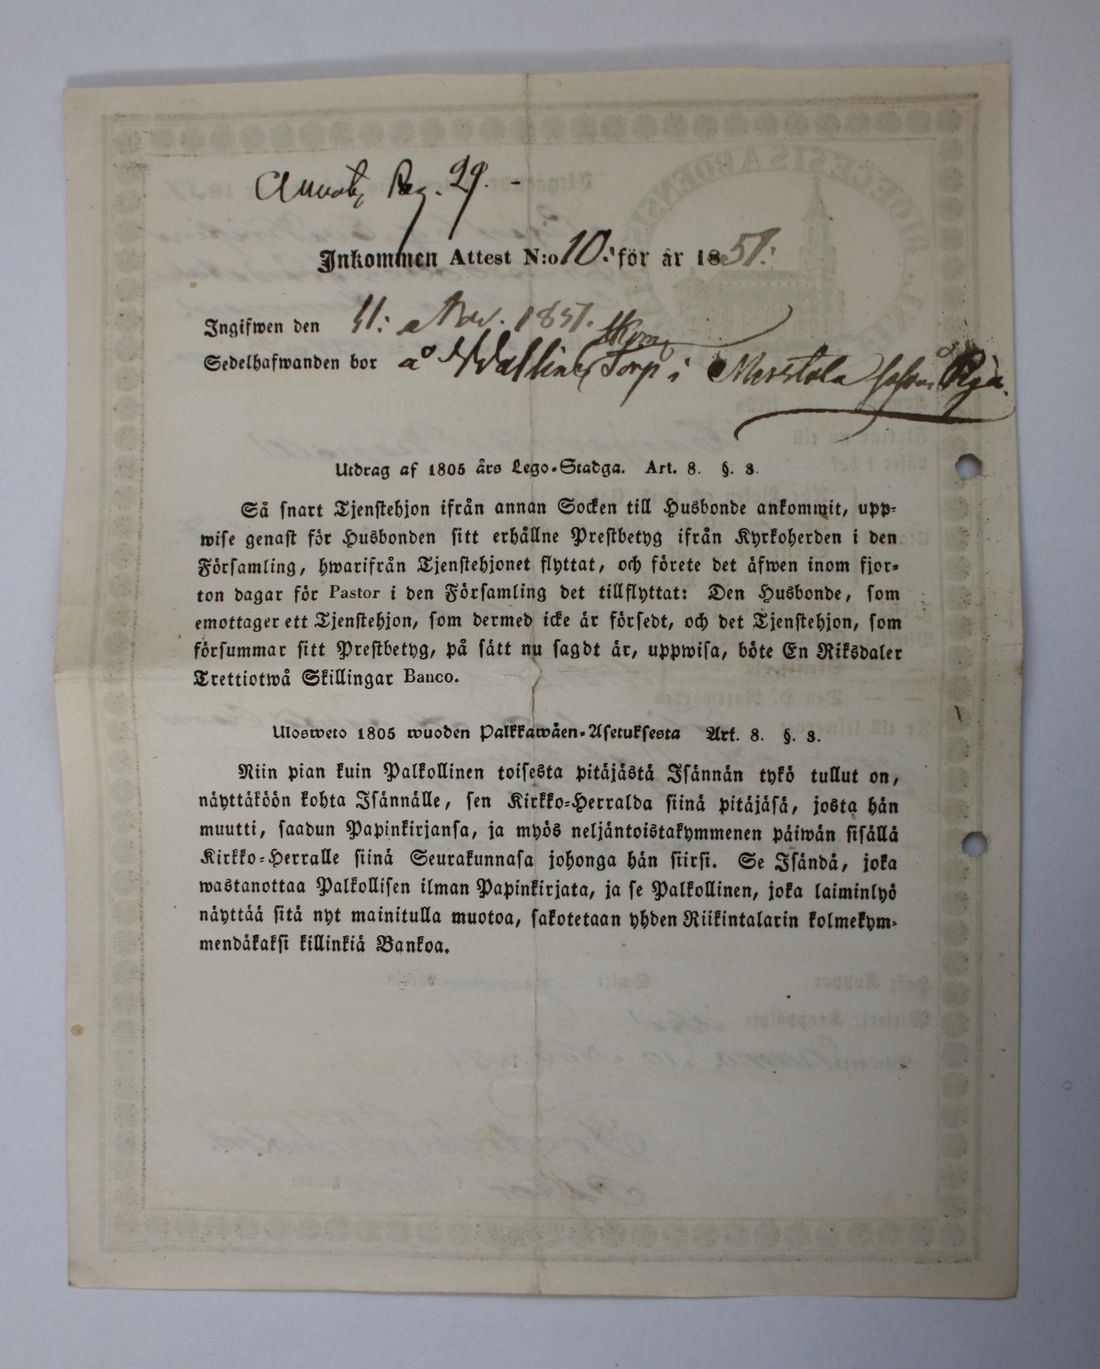 Pag. 29. -
Inkommen Attest N:o 10: för år 1851:
Ingifwen den 11: Nov. 1851.
Sedelhafwanden bor å Torp i
Utdrag af 1805 års Lego-Stadga. Art. 8. §. 3.
Så snart Tjenstehjon ifrån annan Socken till Husbonde ankommit, upp-
wise genast för Husbonden sitt erhållne Prestbetyg ifrån Kyrkoherden i den
Församling, hwarifrån Tjenstehjonet flyttat, och förete det äfwen inom fjor-
ton dagar för Pastor i den Församling det tillflyttat: Den Husbonde, som
emottager ett Tjenstehjon, som dermed icke är försedt, och det Tjenstehjon, som
försummar sitt Prestbetyg, på sätt nu sagdt är, uppwisa, böte En Riksdaler
Trettiotwå Skillingar Banco.
Ulosweto 1805 wuoden Palkkawäen-Asetuksesta Art. 8. §. 3.
Niin pian kuin Palkollinen toisesta pitäjästä Isännän tykö tullut on,
näyttäköön kohta Isännälle, sen Kirkko-Herralda siinä pitäjäsä, josta hän
muutti, saadun Papinkirjansa, ja myös neljäntoistakymmenen päiwän sisällä
Kirkko-Herralle siinä Seurakunnasa johonga hän siirsi. Se Isändä, joka
wastanottaa Palkollisen ilman Papinkirjata, ja se Palkollinen, joka laiminlyö
näyttää sitä nyt mainitulla muotoa, sakotetaan yhden Riikintalarin kolmekym-
mendäkaksi killinkiä Bankoa.